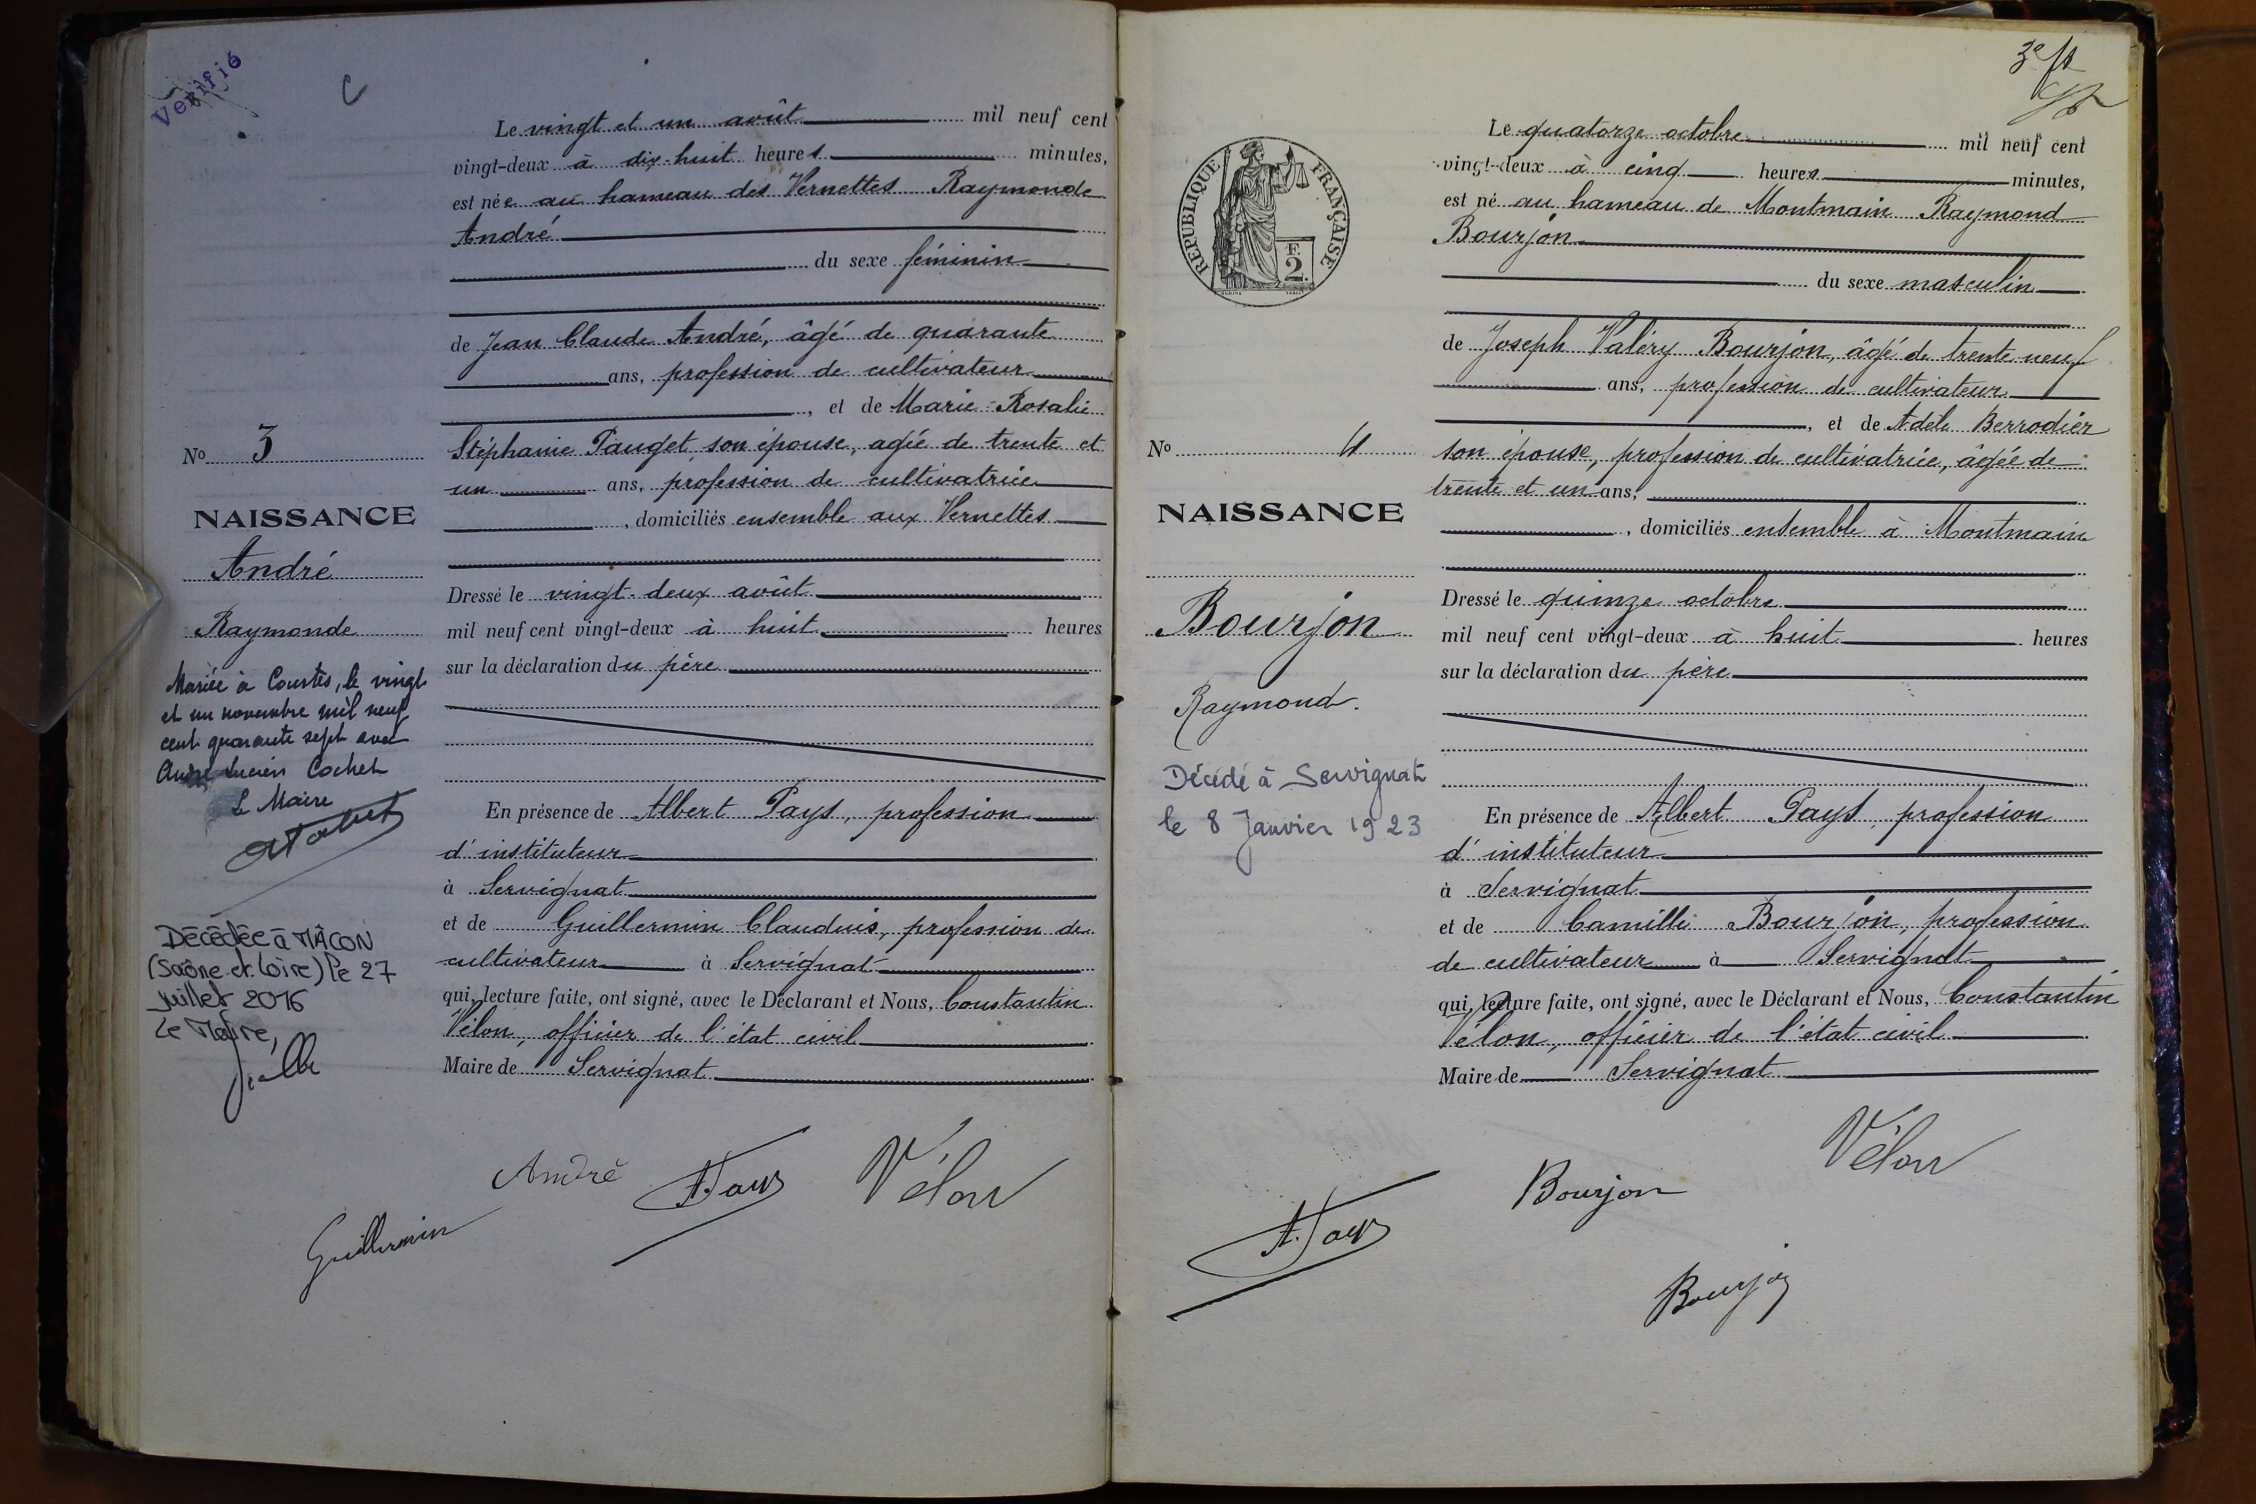 Vérifié
C
Le vingt et un août mil neuf cent
vingt-deux à dix-huit heures minutes,
est née au hameau des Vernettes Raymonde
André
du sexe féminin
de Jean Claude André, âgé de quarante
ans, profession de cultivateur
, et de Marie-Rosalie
Stéphanie Pauget, son épouse, agée de trente et
un ans, profession de cultivatrice
, domiciliés ensemble aux Vernettes
Dressé le vingt-deux août
mil neuf cent vingt-deux à huit heures
sur la déclaration du père
En présence de Albert Pays, profession
d'instituteur
à Servignat
et de Guillermin Claudius, profession de
cultivateur à Servignat
qui, lecture faite, ont signé, avec le Déclarant et Nous, Constantin
Vélon, officier de l'état civil
Maire de Servignat
No 3
NAISSANCE
André
Raymonde
Mariée à Courtes, le vingt
et un novembre mil neuf
cent quarante sept avec
André Lucien Cochet
Le Maire
Décédée à MÂCON
(Saône et Loire) le 27
juillet 2016
Le Maire,
André
A. Pays
Vélon
Guillermin
3e ft
RÉPUBLIQUE FRANÇAISE
F.
2.
Le quatorze octobre mil neuf cent
vingt-deux à cinq heures minutes,
est né au hameau de Montmain Raymond
Bourjon
du sexe masculin
de Joseph Valéry Bourjon, âgé de trente-neuf
ans, profession de cultivateur
, et de Adèle Berrodier
son épouse, profession de cultivatrice, âgée de
trente et un ans,
, domiciliés ensemble à Montmain
Dressé le quinze octobre
mil neuf cent vingt-deux à huit heures
sur la déclaration du père
En présence de Albert Pays, profession
d'instituteur
à Servignat
et de Camille Bourjon, profession
de cultivateur à Servignat
qui, lecture faite, ont signé, avec le Déclarant et Nous, Constantin
Vélon, officier de l'état civil
Maire de Servignat
No 4
NAISSANCE
Bourjon
Raymond.
Décédé à Servignat
le 8 Janvier 1923
Vélon
Bourjon
A. Pays
Bourjon